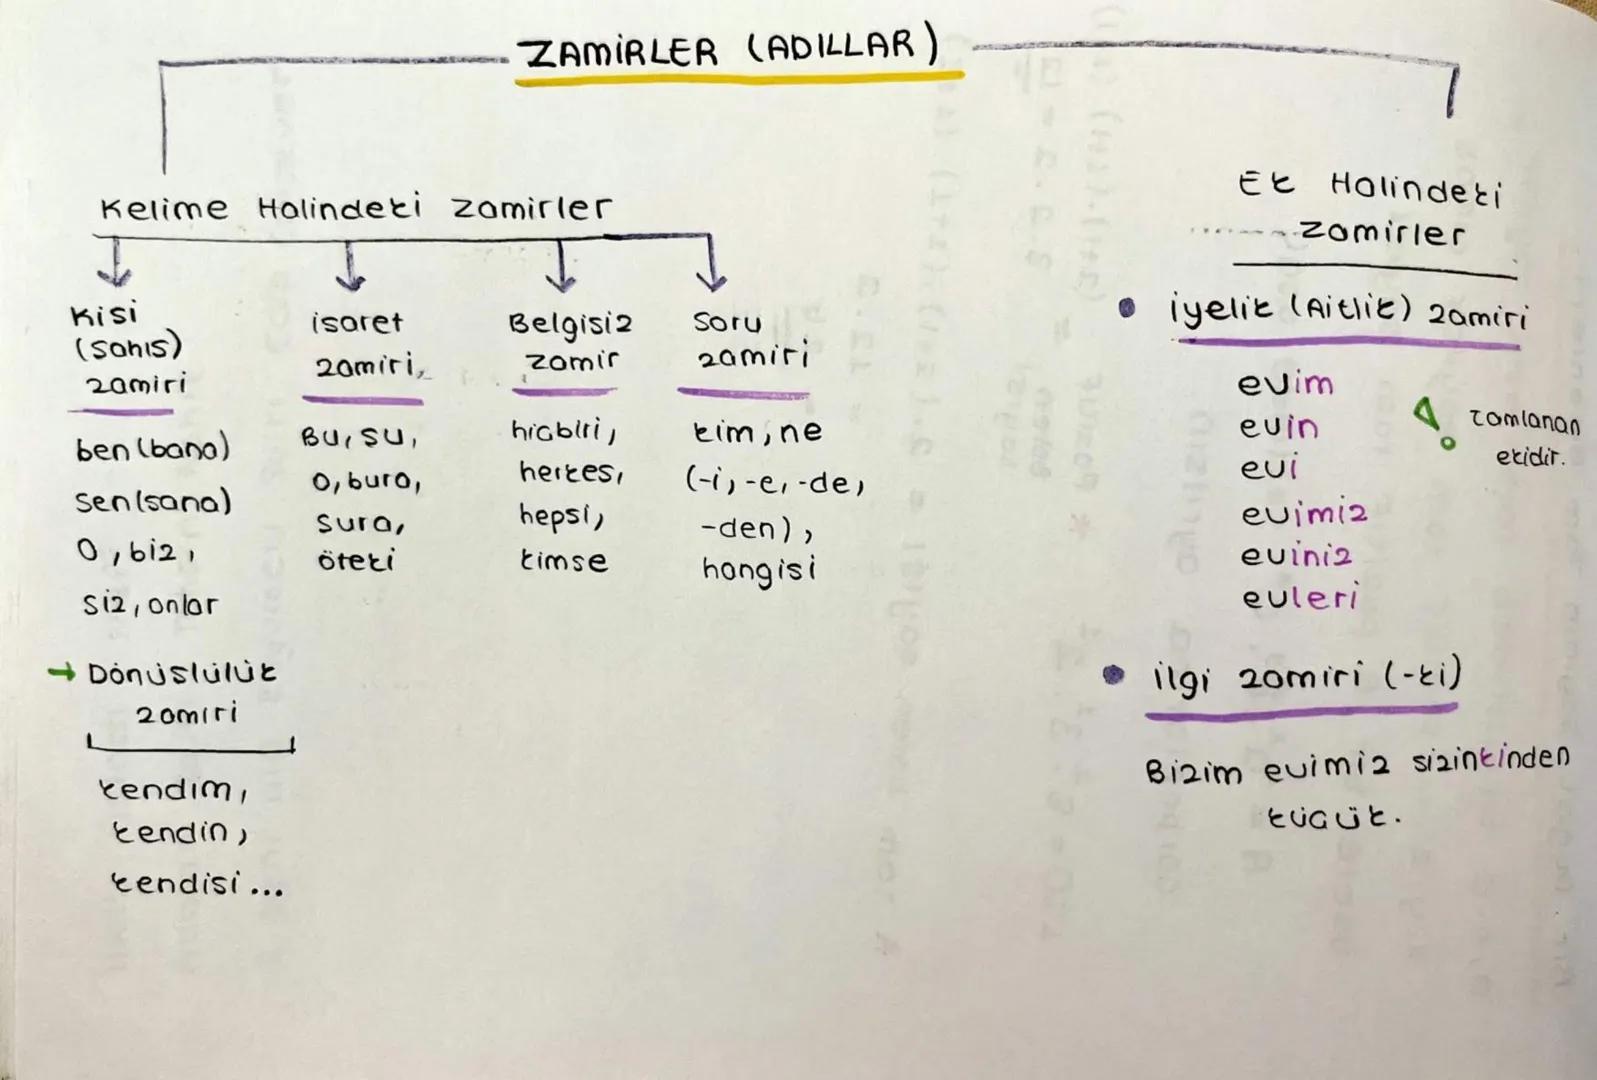 ZAMİRLER (ADILLAR)
Kelime Halindeki Zamirler
Kişi
(şahıs)
zamiri
ben (bana)
Sen (sana)
O, biz,
siz, onlar
→ Dönüşlülük
zamiri
kendim,
kendin,
kendisi...
işaret
zamiri,
Bu, şu,
O, bura,
şura,
öteki
Belgisiz
zamir
hiçbiri,
herkes,
hepsi,
kimse
Soru
zamiri
kim, ne
(-i, -e, -de,
-den),
hangisi
Ek Halindeki
Zamirler
• iyelik (Aitlik) zamiri
evim
evin
evi
evimiz
eviniz
evleri
! Tamlanan
ekidir.
• ilgi zamiri (-ki)
Bizim evimiz sizinkinden
küçük.